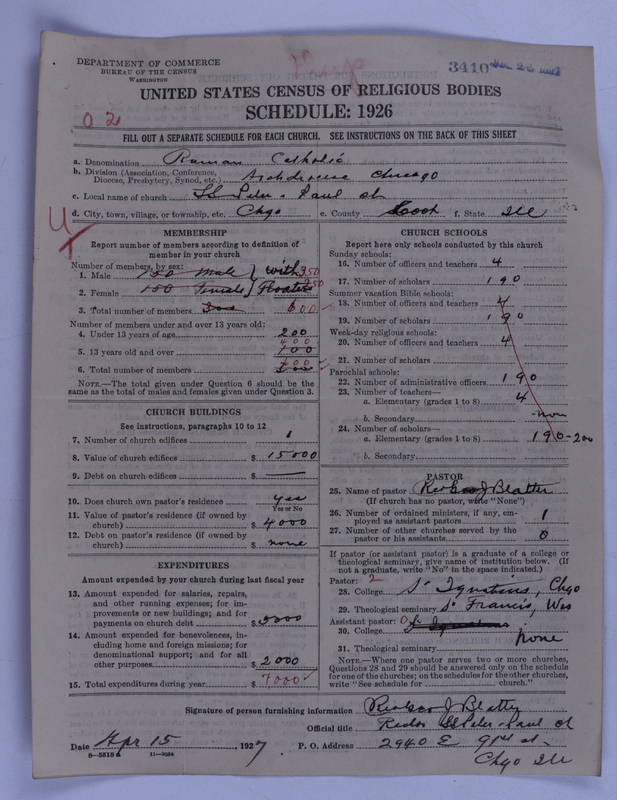 DEPARTMENT OF COMMERCE
BUREAU OF THE CENSUS
WASHINGTON
3410
UNITED STATES CENSUS OF RELIGIOUS BODIES
SCHEDULE: 1926
02
FILL OUT A SEPARATE SCHEDULE FOR EACH CHURCH. SEE INSTRUCTIONS ON THE BACK OF THIS SHEET
a. Denomination Roman Catholic
b. Division (Association, Conference, Diocese, Presbytery, Synod, etc.) Archdiocese Chicago
c. Local name of church SS Peter - Paul ch
d. City, town, village, or township, etc. Chgo e. County Cook f. State Ill
MEMBERSHIP
Report number of members according to definition of member in your church
Number of members, by sex:
1. Male 150 Male with 350
2. Female 150 Females Floaters 250
3. Total number of members 300 600
Number of members under and over 13 years old:
4. Under 13 years of age 200
5. 13 years old and over 400 100
6. Total number of members 600 300
NOTE.—The total given under Question 6 should be the same as the total of males and females given under Question 3.
CHURCH BUILDINGS
See instructions, paragraphs 10 to 12
7. Number of church edifices 1
8. Value of church edifices $ 15000
9. Debt on church edifices $ —
10. Does church own pastor's residence yes
Yes or No
11. Value of pastor's residence (if owned by church) $ 4000
12. Debt on pastor's residence (if owned by church) $ none
EXPENDITURES
Amount expended by your church during last fiscal year
13. Amount expended for salaries, repairs, and other running expenses; for improvements or new buildings; and for payments on church debt $ 5000
14. Amount expended for benevolences, including home and foreign missions; for denominational support; and for all other purposes $ 2000
15. Total expenditures during year $ 7000
CHURCH SCHOOLS
Report here only schools conducted by this church
Sunday schools:
16. Number of officers and teachers 4
17. Number of scholars 190
Summer vacation Bible schools:
18. Number of officers and teachers 4
19. Number of scholars 190
Week-day religious schools:
20. Number of officers and teachers 4
21. Number of scholars
Parochial schools:
22. Number of administrative officers 190
23. Number of teachers—
a. Elementary (grades 1 to 8) 4
b. Secondary non
24. Number of scholars—
a. Elementary (grades 1 to 8) 190-200
b. Secondary
PASTOR
25. Name of pastor Rev Geo J Blatter
(If church has no pastor, write "None")
26. Number of ordained ministers, if any, employed as assistant pastors 1
27. Number of other churches served by the pastor or his assistants 0
If pastor (or assistant pastor) is a graduate of a college or theological seminary, give name of institution below. (If not a graduate, write "No" in the space indicated.)
Pastor: 2
28. College St Ignatius, Chgo
29. Theological seminary St Francis, Wis
Assistant pastor: 0
30. College St Ignatius none
31. Theological seminary
NOTE.—Where one pastor serves two or more churches, Questions 28 and 29 should be answered only on the schedule for one of the churches; on the schedules for the other churches, write "See schedule for church."
Signature of person furnishing information Rev Geo J Blatter
Official title Rector SS Peter - Paul Ch
Date Apr 15, 1927 P. O. Address 2940 E 91st st.
8—5515a 11—9034
Chgo Ill